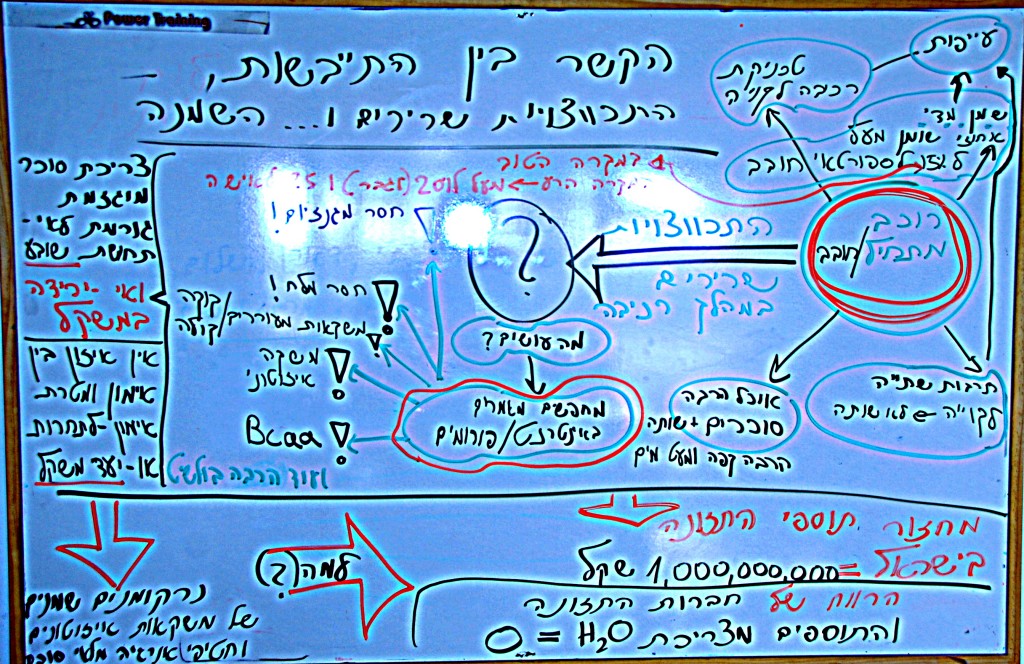 Power Training
הקשר בין התייבשות,
התכווצויות שרירים ו... השמנה
עייפות
טכניקת
רכיבה לקנייה
שמן מדי
אחוזי שומן מעל
חובב
רוכב
מתחיל/חובב
התכווצויות
שרירים
במהלך רכיבה
?
מה עושים?
מחפשים מאמרים
באינטרנט/פורומים
אוכל הרבה
סוכרים + שותה
הרבה קפה ומעט מים
תרבות שתייה
לקנייה ⇐ לא שותה
במקרה הטוב
במקרה הרע
חסר מגנזיום!
חסר מלח!
משקאות מעוררים/קולה
משקה
איזוטוני
Bcaa
ועוד הרבה בולשיט
צריכת סוכר
מוגזמת
גורמת לאי-
תחושת שובע
ואי-ירידה
במשקל
אין איזון בין
אימון ומטרת
אימון-לתחרות
או-יעד משקל
נרקומנים שמנים
של משקאות איזוטונים
וחטיפי אנרגיה מלאי סוכר
למה(?)
מחזור תוספי התזונה
בישראל = 1,000,000,000 שקל
הרווח של חברות התזונה
והתוספים מצריכת H2O = 0